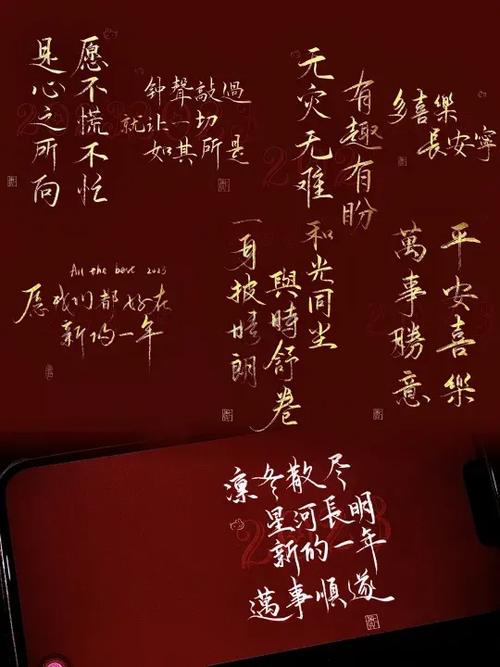 愿不慌不忙
是心之所向
钟聲敲過
就让一切
如其所是
有趣有盼
无灾无难
多喜樂
長安寧
All the best 2023
愿我们都好在
新的一年
和光同尘
與時舒卷
一身披晴朗
平安喜樂
萬事勝意
凛冬散尽
星河長明
新的一年
萬事順遂